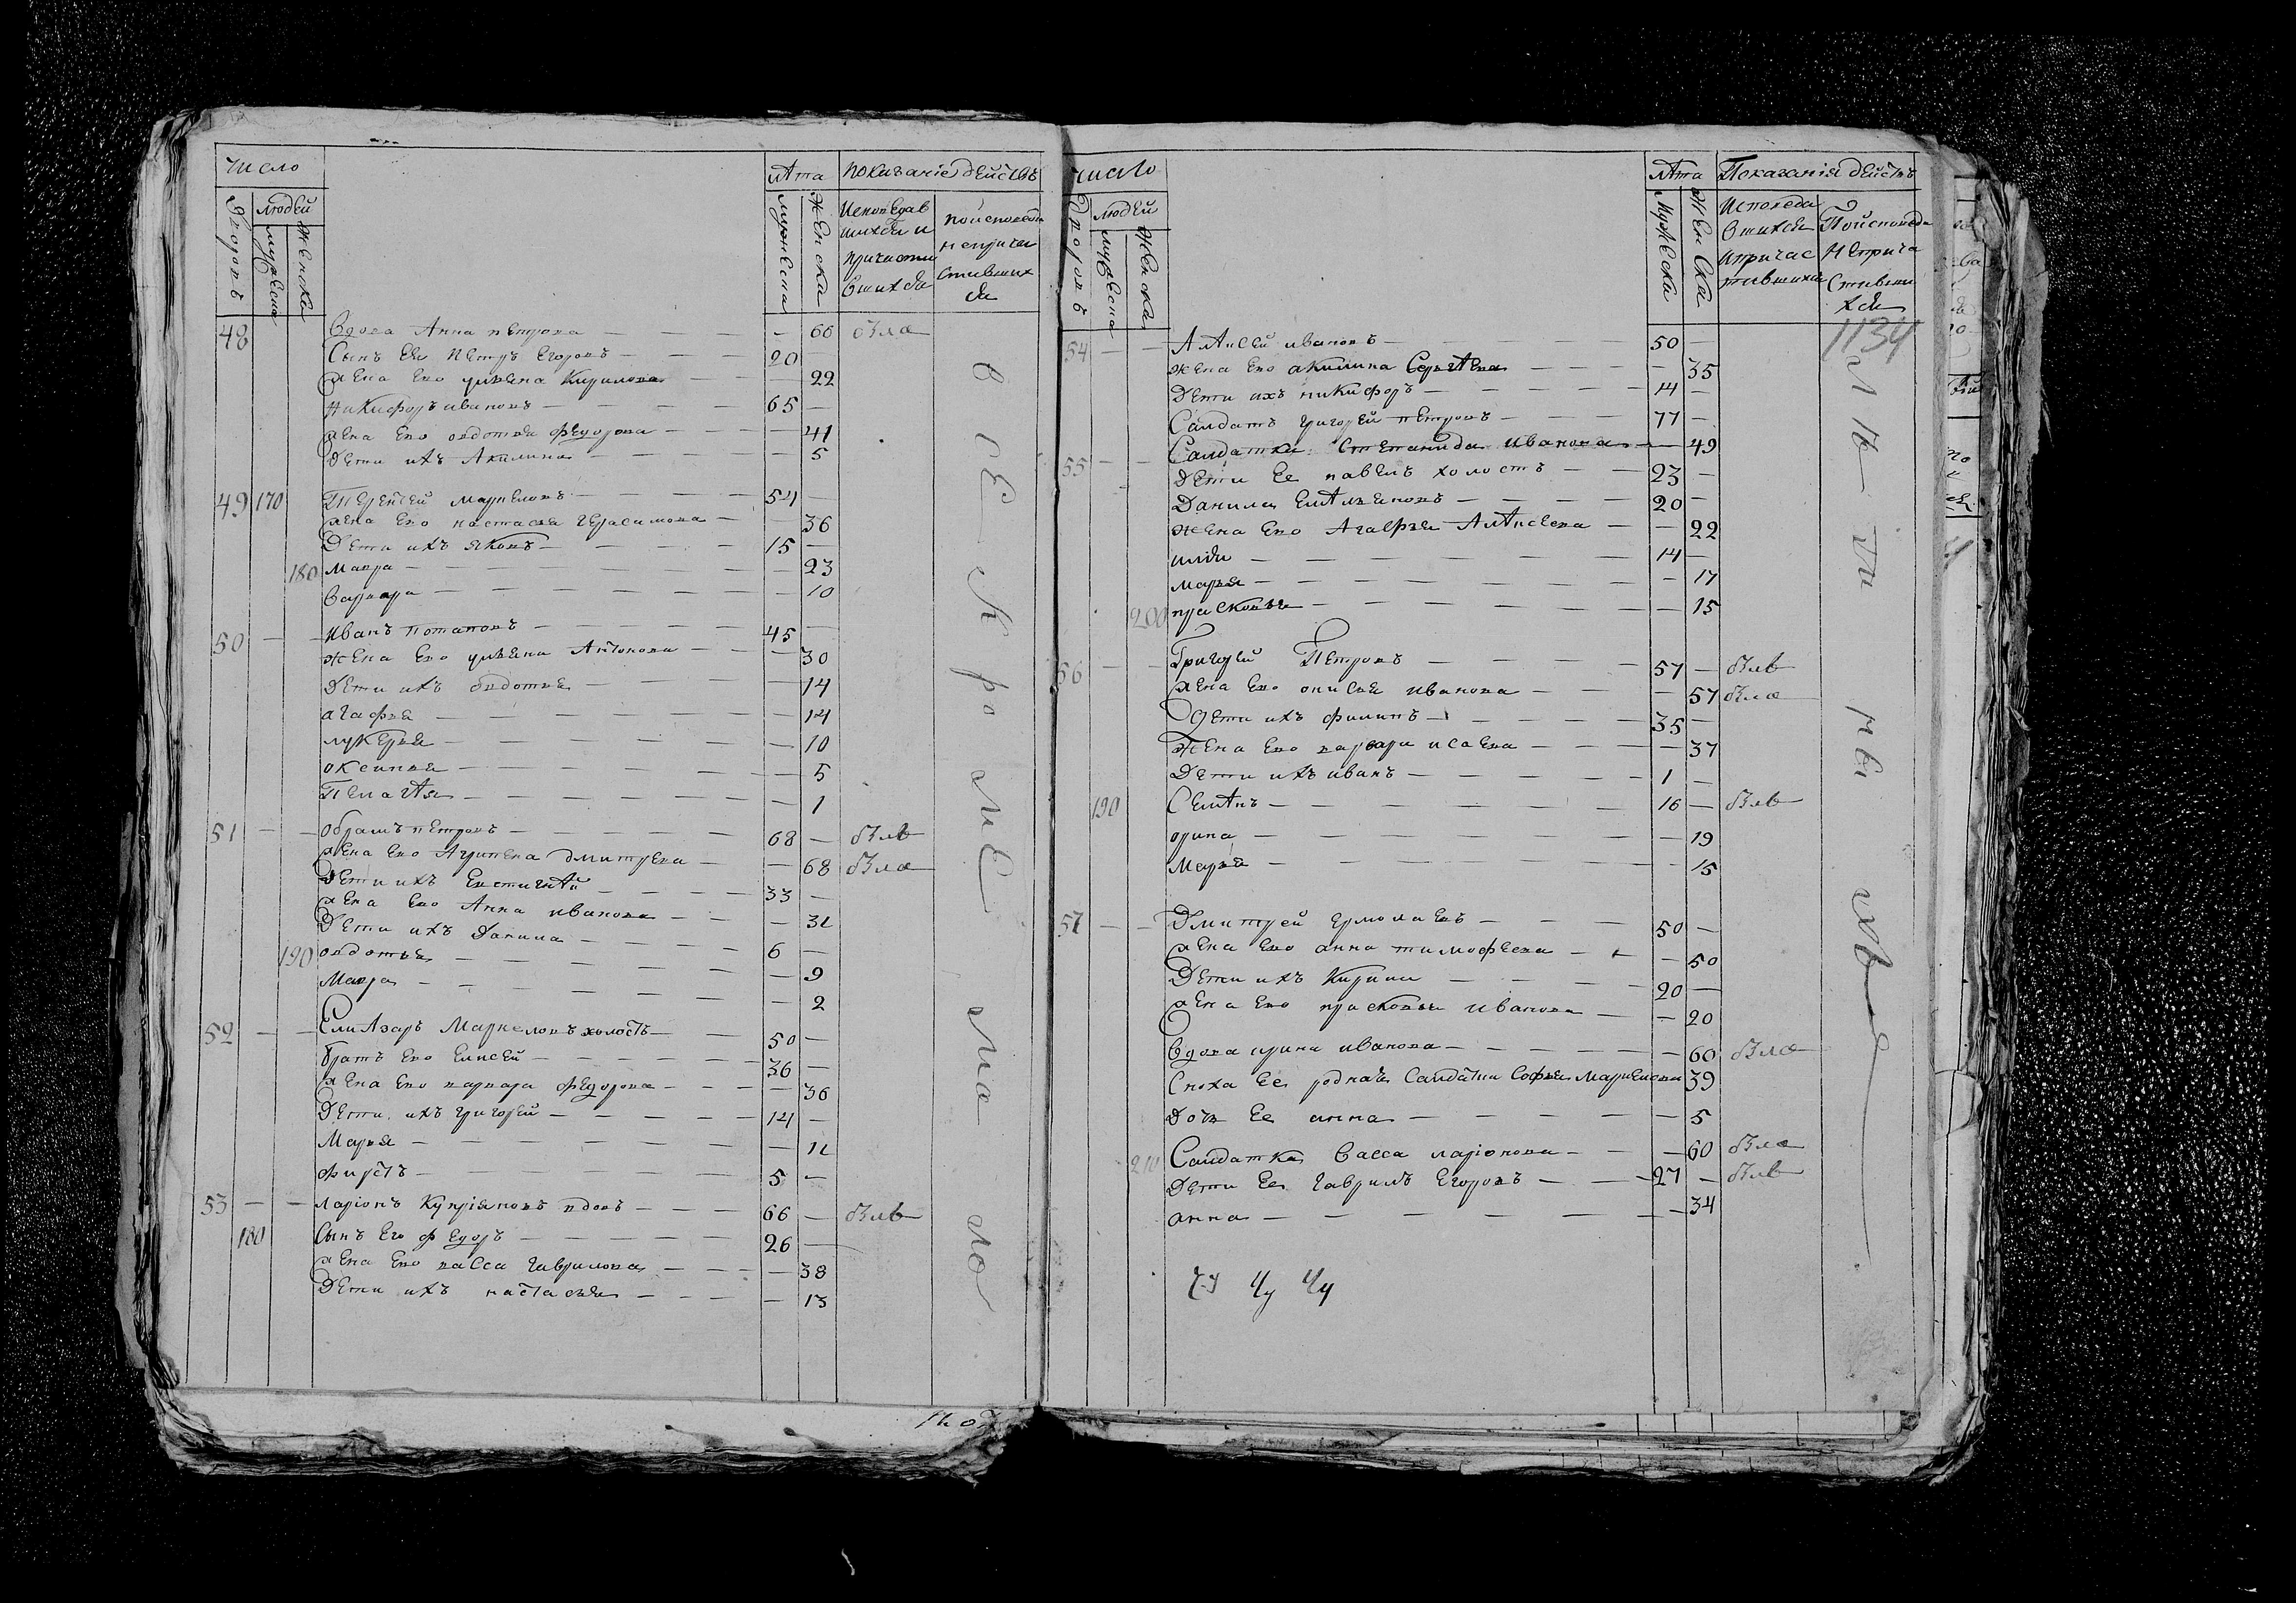 число
лѣта показаніе действъ
Дворовъ
людей
мужеска
женска
мужеска
женска
исповедав
шихся и
причастив
шихся
по исповеди
непричас
тившихся
48 Вдова Анна петрова — 60 была
Сынъ Ея петръ Егоровъ — 20
жена Ево ульяна Кирилова — 22
никифоръ ивановъ — 65
жена Ево овдотья федорова — 41
дети ихъ Акилина — 5
49 170 маркеловъ — 54
жена Ево настасья герасимова — 36
Дети ихъ яковъ — 15
180 мавра — 23
варвара — 10
50 иванъ потаповъ — 45
жена Ево ульяна Антонова — 30
дети ихъ овдотья — 14
агафья — 14
лукерья — 10
оксинья — 5
Пелагѣя — 1
51 обрамъ петровъ — 68 былъ
жена Ево Агрипена дмитрева — 68 была
дети ихъ Евстигнѣй — 33
жена Ево Анна иванова — 31
Дети ихъ Данила — 6
190 овдотья — 9
Мавра — 2
52 Елиѣзаръ Маркеловъ холостъ — 50
братъ Ево Елисей — 36
жена Ево варвара федорова — 36
Дети ихъ григорей — 14
Марья — 11
фирстъ — 5
53 ларіонъ Купріяновъ вдовъ — 66 былъ
180 сынъ Его федоръ — 26
жена Ево васса гаврилова — 38
Дети ихъ настасья — 13
все к ро ме ма ло
число
лѣта Показанія действъ
Дворовъ
людей
мужеска
женска
мужеска
женска
исповеда
вшихся
ипричас
тившихся
По исповеди
неприча
стивши
хся
1134
54 Алѣксей ивановъ — 50
жена Ево акилина Сергѣева — 35
Дети ихъ никифоръ — 14
Салдатъ григорей петровъ — 77
55 Салдатка Степанида иванова — 49
дети Ее павелъ холостъ — 23
Данила Емѣльяновъ — 20
жена Ево Агафья Алѣксеева — 22
илія — 14
марья — 17
200 прасковья — 15
56 Григорей Петровъ — 57 былъ
жена Ево онисья иванова — 57 была
Дети ихъ филипъ — 35
жена Ево варвара исаева — 37
Дети ихъ иванъ — 1
190 Семѣнъ — 16 былъ
орина — 19
Марья — 15
57 Дмитрей ермолаевъ — 50
жена Ево анна тимофеева — 50
Дети ихъ Кирила — 20
жена Ево прасковья иванова — 20
вдова ирина иванова — 60 была
Сноха Ее родная Салдатка Софья Маркелова 39
дочь Ее анна — 5
210 Салдатка Васса ларіонова — 60 была
дети Ее гаврилъ Егоровъ — 27 былъ
анна — 34